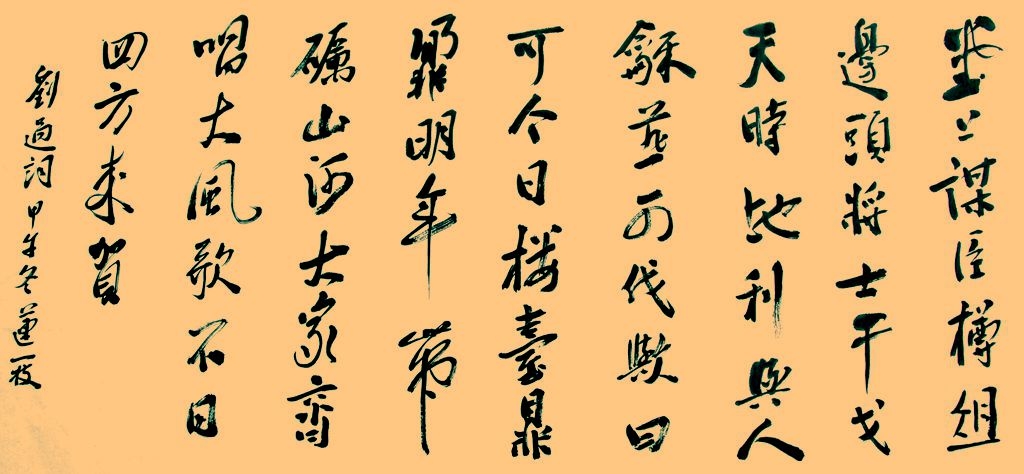 堂上謀臣樽組
邊頭將士干戈
天時地利與人
龢燕可伐歟曰
可今日樓臺鼎
鼐明年帶
礪山河大家齊
唱大風歌不日
四方来賀
劉過詞甲午冬蓮一枝